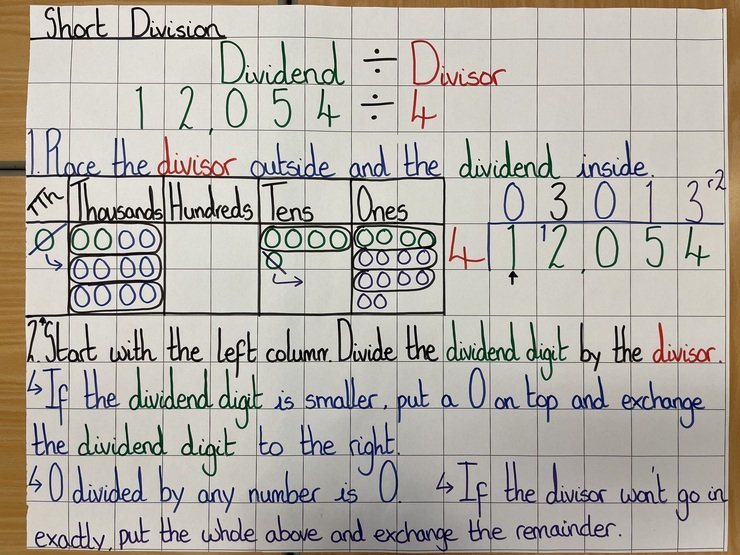 Short Division
Dividend ÷ Divisor
12,054 ÷ 4
1. Place the divisor outside and the dividend inside.
TTh Thousands Hundreds Tens Ones
0 3 0 1 3 r2
4 1 ¹2,0 5 4
2. Start with the left column. Divide the dividend digit by the divisor.
↳ If the dividend digit is smaller, put a 0 on top and exchange
the dividend digit to the right.
↳ 0 divided by any number is 0. ↳ If the divisor won't go in
exactly, put the whole above and exchange the remainder.